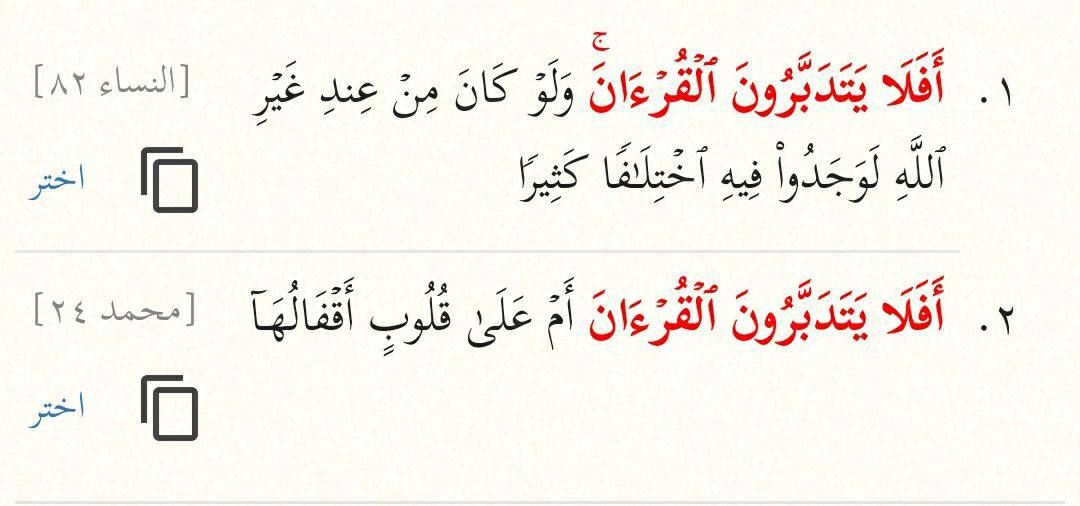 ١. أَفَلَا يَتَدَبَّرُونَ ٱلۡقُرۡءَانَۚ وَلَوۡ كَانَ مِنۡ عِندِ غَيۡرِ [النساء ٨٢]
ٱللَّهِ لَوَجَدُواْ فِيهِ ٱخۡتِلَٰفٗا كَثِيرٗا
اختر
٢. أَفَلَا يَتَدَبَّرُونَ ٱلۡقُرۡءَانَ أَمۡ عَلَىٰ قُلُوبٍ أَقۡفَالُهَآ [محمد ٢٤]
اختر